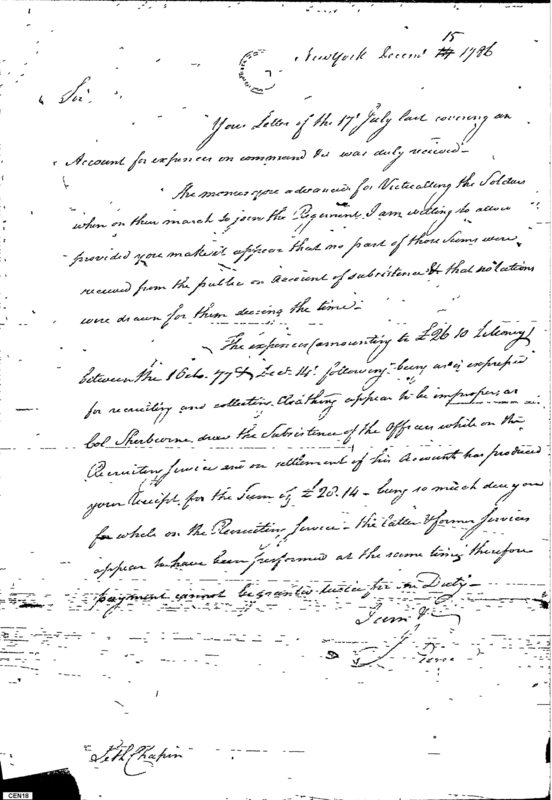 15
New York Decem. 1786
Sir
Your Letter of the 17th July last covering an
Account for expences on command &c was duly received -
The monies you advanced for Victualling the Soldiers
when on their march to join the Regiment, I am willing to allow
provided you make it appear that no part of those Sums were
received from the public on Account of subsistence & that no rations
were drawn for them during the time -
The expences (amounting to £26 10
between the 1 Octo. 77 & Dec. 14 following being as is expressed
for recruiting and collecting Cloathing appear to be improper, as
Col Sherburne drew the Subsistence of the Officers while on the
Recruiting Service and on settlement of his Accounts has produced
your Receipt for the Sum of £20.14 - being so much due you
for while on the Recruiting Service - the latter & former Services
appear to have been performed at the same time, therefore
payment cannot be granted twice for one Duty -
I am &c
Seth Chapin
CEN18